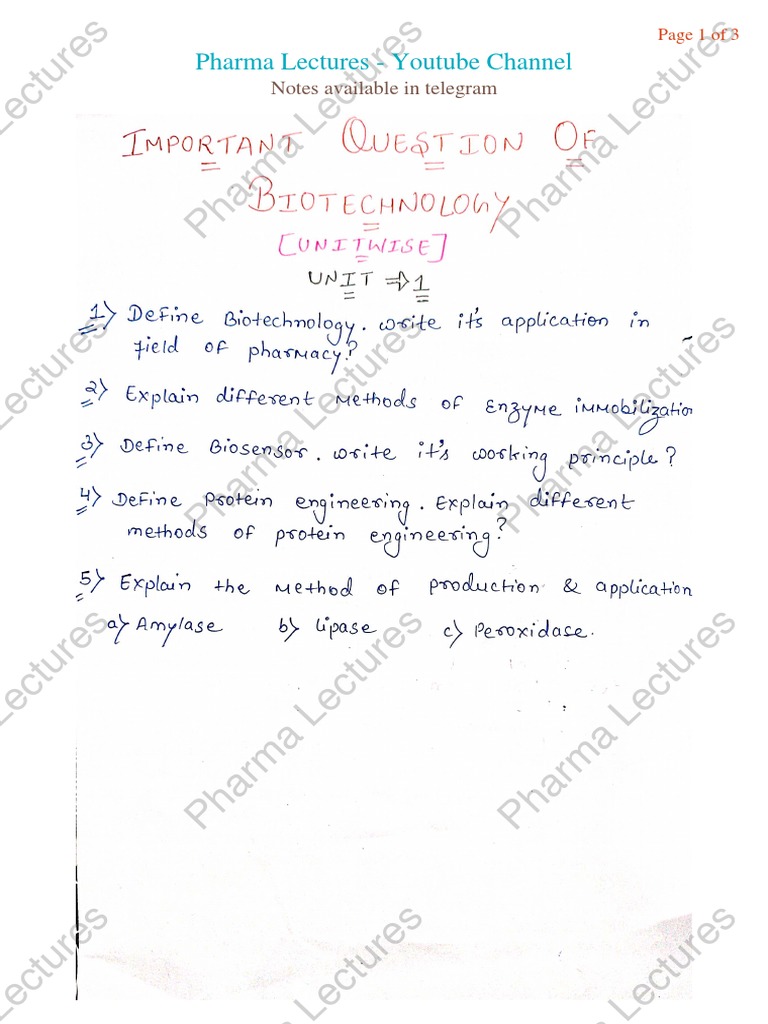 Page 1 of 3
Pharma Lectures - Youtube Channel
Notes available in telegram
IMPORTANT QUESTION OF
BIOTECHNOLOGY
[UNITWISE]
UNIT ⇒ 1
1) Define Biotechnology. write it's application in
field of pharmacy?
2) Explain different methods of Enzyme immobilization
3) Define Biosensor. write it's working principle?
4) Define protein engineering. Explain different
methods of protein engineering?
5) Explain the method of production & application
a) Amylase b) lipase c) Peroxidase.
Pharma Lectures
Pharma Lectures
Pharma Lectures
Pharma Lectures
Pharma Lectures
Pharma Lectures
Lectures
Lectures
Lectures
Lectures
Lectures
Lectures